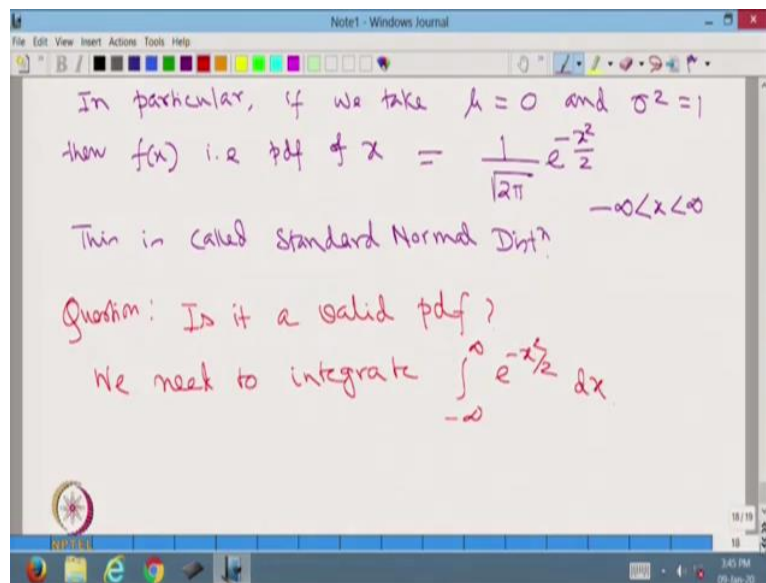 Note1 - Windows Journal
File Edit View Insert Actions Tools Help
In particular, if we take μ = 0 and σ² = 1
then f(x) i.e pdf of x = 1/√2π e^(-x²/2)
-∞<x<∞
This is called Standard Normal Distⁿ.
Question: Is it a valid pdf?
We need to integrate ∫_{-∞}^{∞} e^(-x²/2) dx
NPTEL
18/19
10
3:45 PM
09-Jan-20